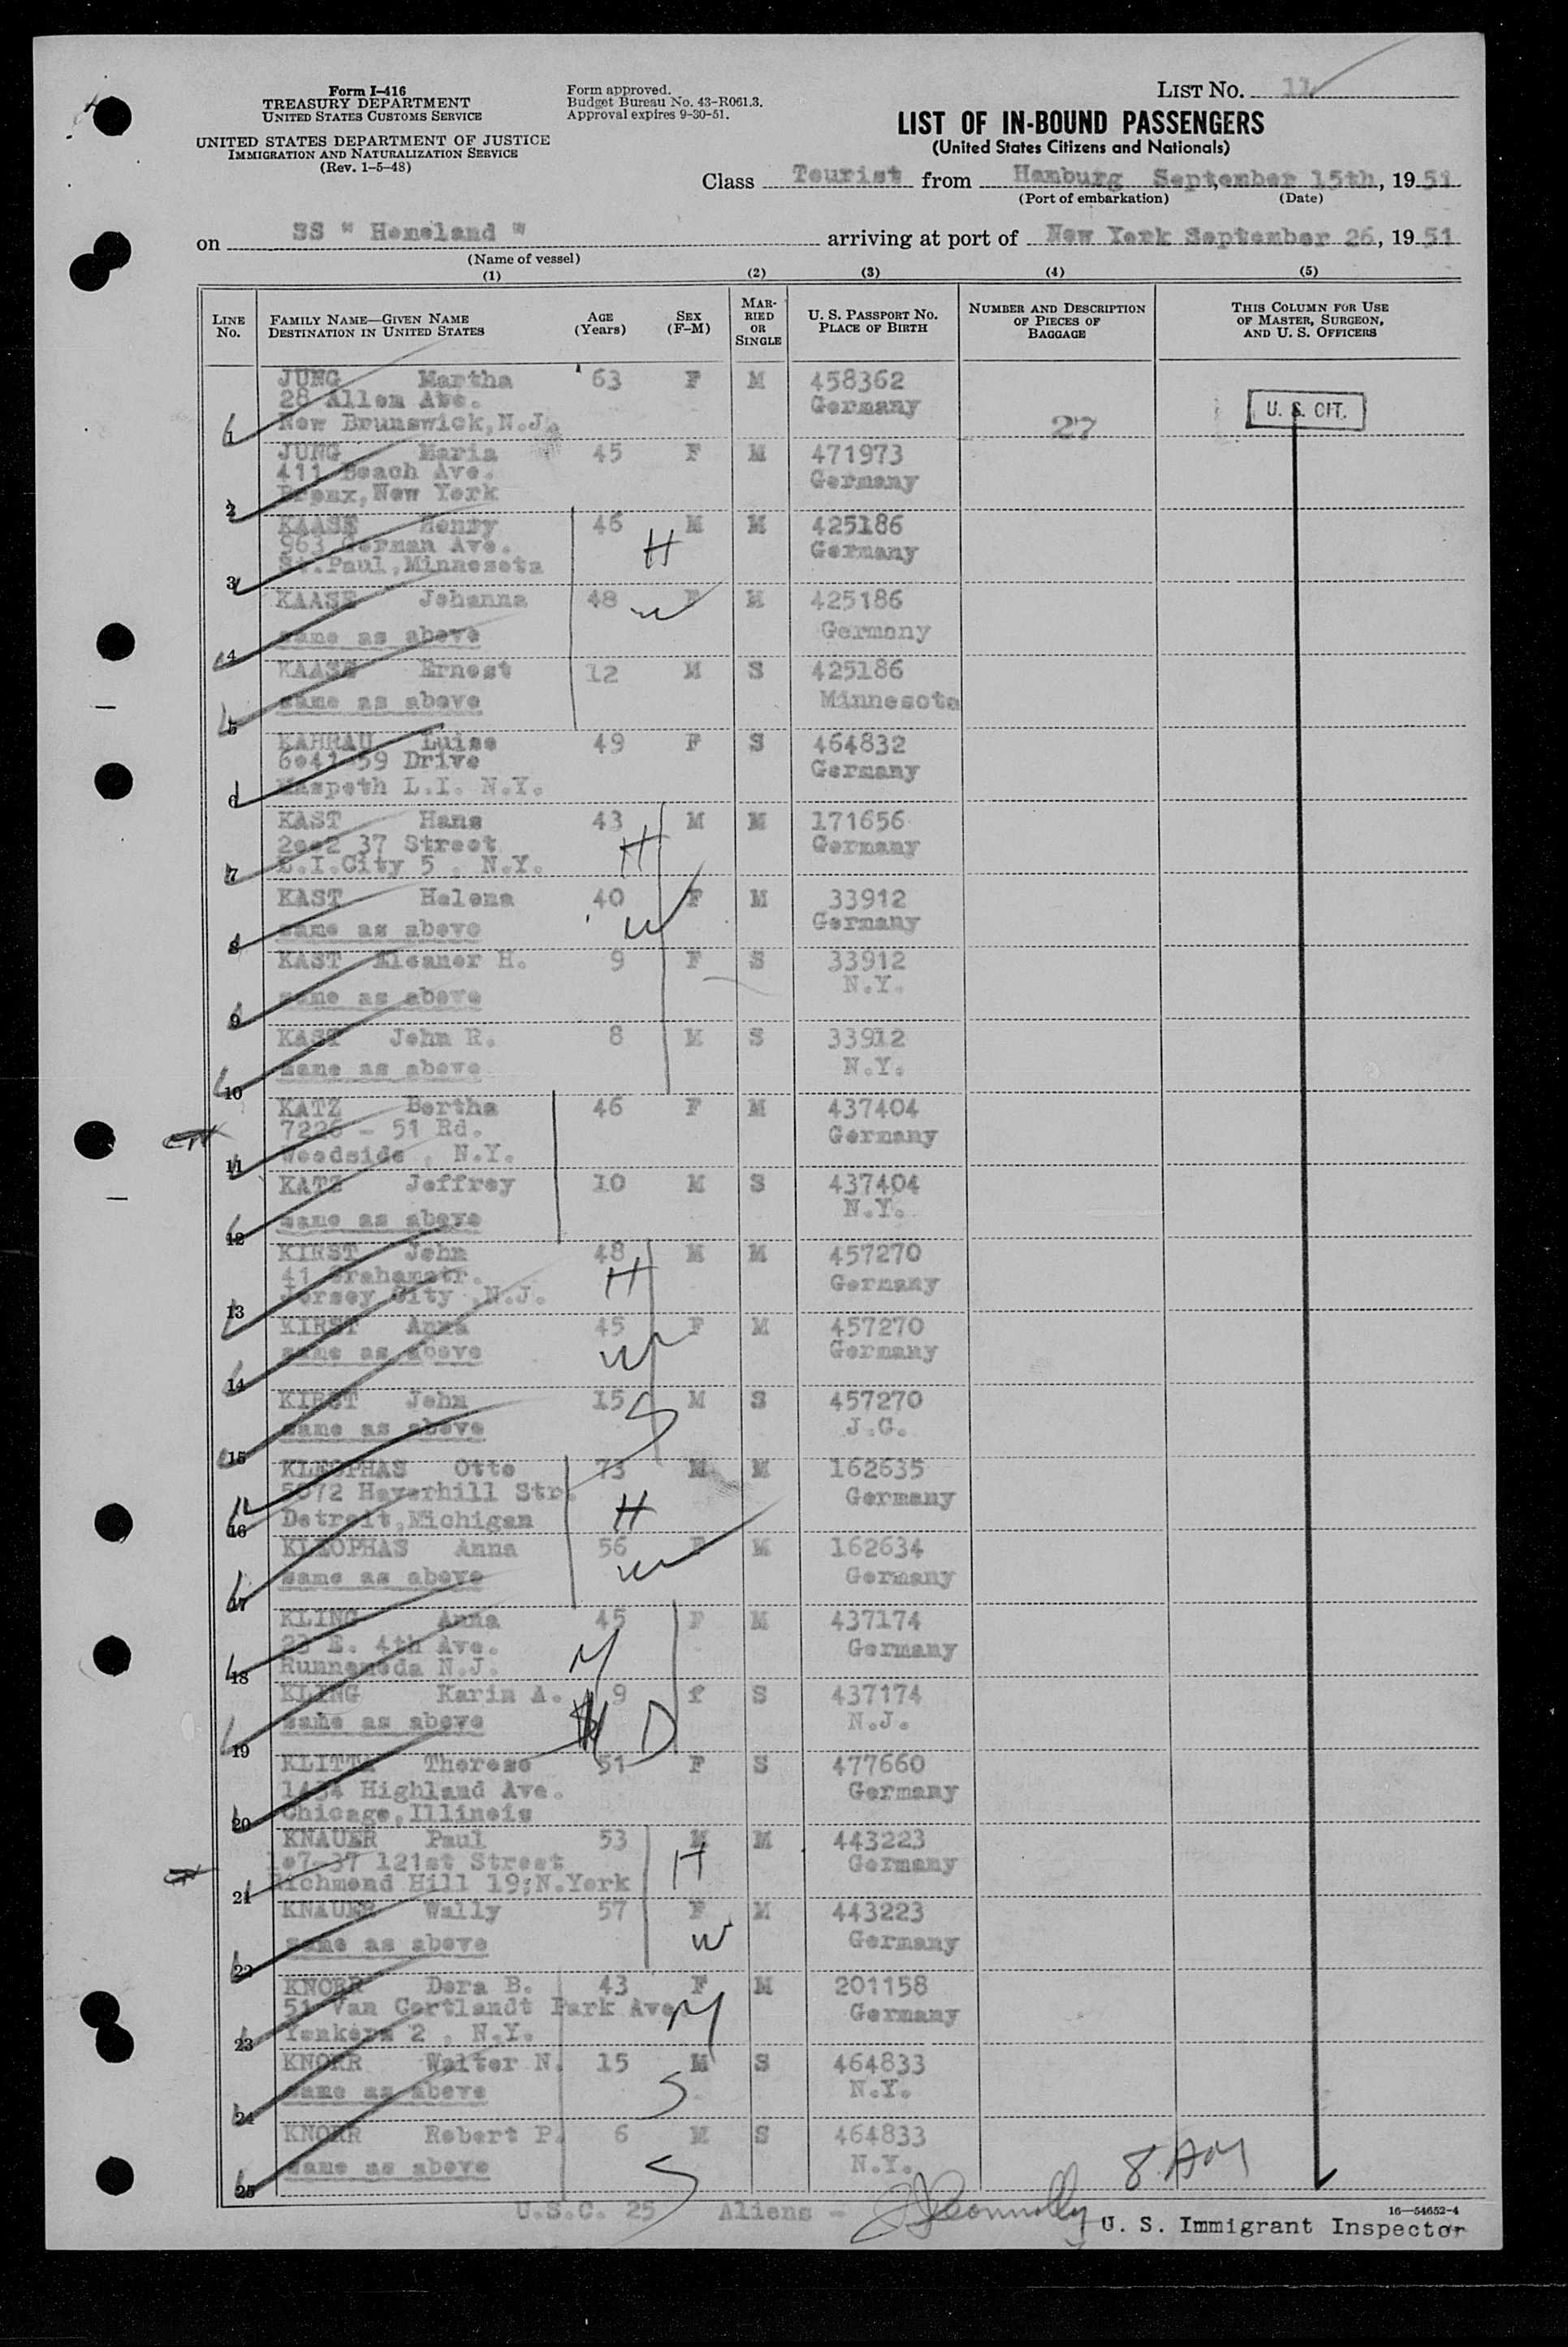 Form I-416
TREASURY DEPARTMENT
UNITED STATES CUSTOMS SERVICE
UNITED STATES DEPARTMENT OF JUSTICE
IMMIGRATION AND NATURALIZATION SERVICE
(Rev. 1-5-48)
Form approved.
Budget Bureau No. 43-R061.3.
Approval expires 9-30-51.
LIST NO. 11
LIST OF IN-BOUND PASSENGERS
(United States Citizens and Nationals)
Class Tourist from Hamburg September 15th, 1951
(Port of embarkation) (Date)
on SS " Homeland " arriving at port of New York September 26, 1951
(Name of vessel)
(1) (2) (3) (4) (5)
LINE NO.
FAMILY NAME—GIVEN NAME
DESTINATION IN UNITED STATES
AGE (Years)
SEX (F-M)
MARRIED OR SINGLE
U. S. PASSPORT NO.
PLACE OF BIRTH
NUMBER AND DESCRIPTION OF PIECES OF BAGGAGE
THIS COLUMN FOR USE OF MASTER, SURGEON, AND U. S. OFFICERS
JUNG Martha 63 F M 458362
28 Allen Ave. Germany
1 New Brunswick, N.J. 27 U. S. CIT.
JUNG Maria 45 F M 471973
411 Beach Ave. Germany
2 Bronx, New York
KAASE Henry 46 M M 425186
963 German Ave. H Germany
3 St.Paul, Minnesota
KAASE Johanna 48 F M 425186
W
4 same as above Germany
KAASE Ernest 12 M S 425186
5 same as above Minnesota
KAHRAU Luise 49 F S 464832
6o41-59 Drive Germany
6 Maspeth L.I. N.Y.
KAST Hans 43 M M 171656
2oo2 37 Street H Germany
7 L.I.City 5 . N.Y.
KAST Helena 40 F M 33912
8 same as above W Germany
KAST Eleanor H. 9 F S 33912
9 same as above N.Y.
KAST John R. 8 M S 33912
10 same as above N.Y.
KATZ Bertha 46 F M 437404
7226 - 51 Rd. Germany
11 Woodside , N.Y.
KATZ Jeffrey 10 M S 437404
12 same as above N.Y.
KIRST John 48 M M 457270
41 Grahamstr. H Germany
13 Jersey City ,N.J.
KIRST Anna 45 F M 457270
14 same as above W Germany
KIRST John 15 M S 457270
15 same as above S J.C.
KLEOPHAS Otto 73 M M 162635
5872 Haverhill Str. Germany
16 Detroit, Michigan H
KLEOPHAS Anna 56 F M 162634
17 same as above W Germany
KLING Anna 45 F M 437174
23 E. 4th Ave. M Germany
18 Runnemeda N.J.
KLING Karin A. 9 f S 437174
19 same as above D N.J.
KLITTA Therese 51 F S 477660
1434 Highland Ave. Germany
20 Chicago, Illinois
KNAUER Paul 53 M M 443223
1o7-37 121st Street H Germany
21 Richmond Hill 19; N.York
KNAUER Wally 57 F M 443223
22 same as above W Germany
KNORR Dora B. 43 F M 201158
51 Van Cortlandt Park Ave M Germany
23 Yonkers 2 , N.Y.
KNORR Walter N. 15 M S 464833
24 same as above S N.Y.
KNORR Robert P. 6 M S 464833
25 same as above S N.Y.
U.S.C. 25 Aliens -
16—54652-4
U. S. Immigrant Inspector